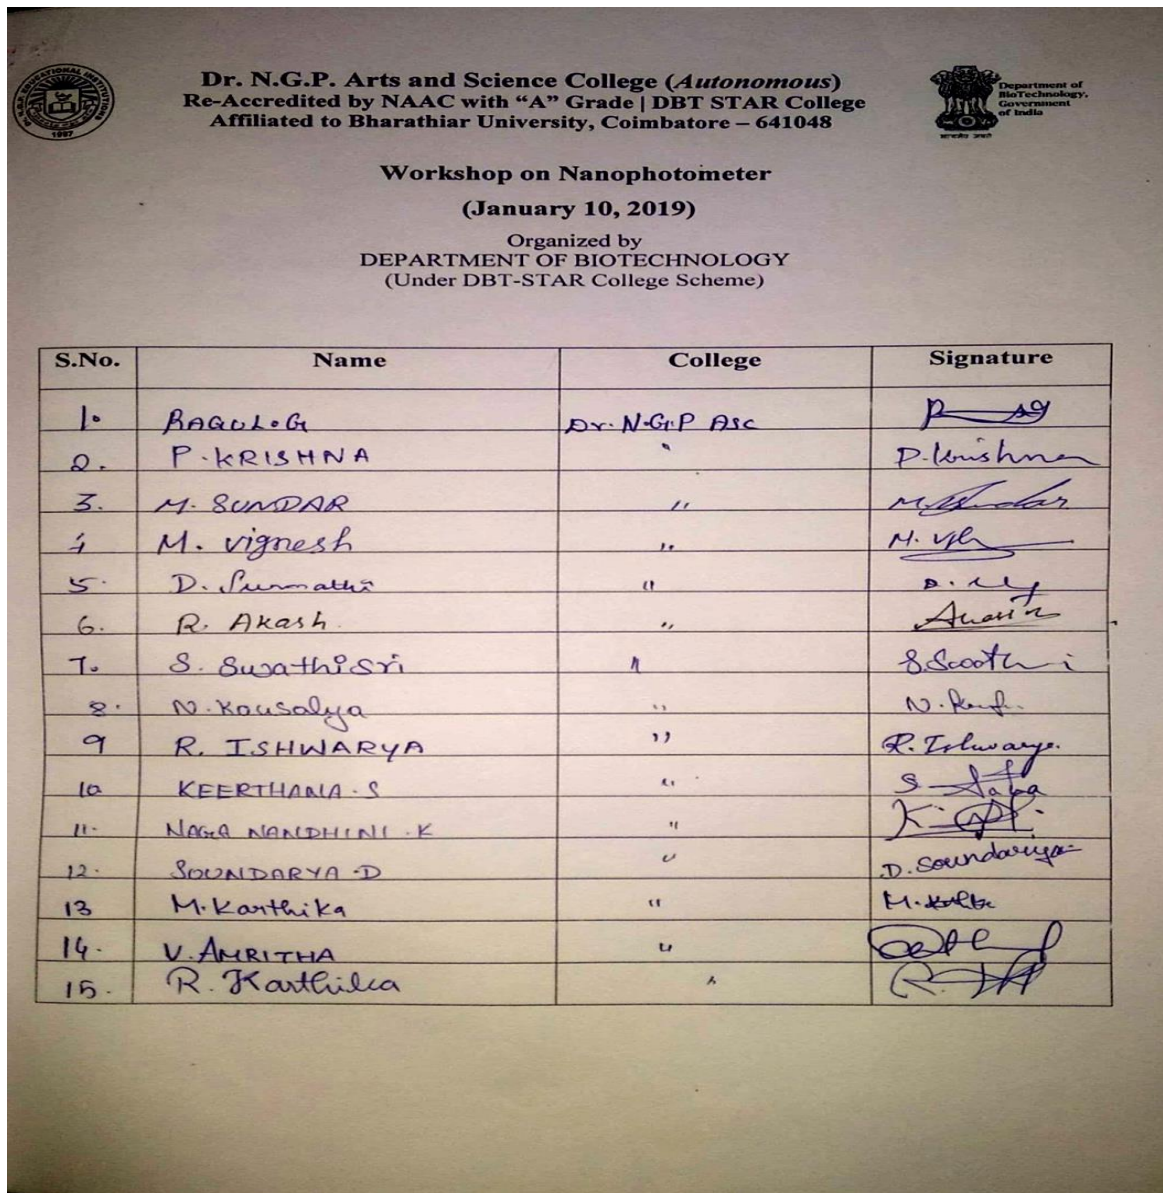 Dr. N.G.P. Arts and Science College (Autonomous)
Re-Accredited by NAAC with “A” Grade | DBT STAR College
Affiliated to Bharathiar University, Coimbatore – 641048
Department of
BioTechnology,
Government
of India
सत्यमेव जयते
1997
Workshop on Nanophotometer
(January 10, 2019)
Organized by
DEPARTMENT OF BIOTECHNOLOGY
(Under DBT-STAR College Scheme)
S.No. Name College Signature
1. RAGUL.G Dr. N.G.P ASC
2. P.KRISHNA " P.Krishna
3. M. SUNDAR " M.
4 M. vignesh " M.
5. D. Sumathi " D.
6. R. Akash "
7. S. Swathisri "
8. N.Kousalya " N.
9 R. ISHWARYA " R. Ishwarya.
10 KEERTHANA.S " S.
11. NAGA NANDHINI.K " K.
12. SOUNDARYA.D " D. Soundariya
13 M.Karthika " M.
14. V.AMRITHA "
15. R. Karthika "